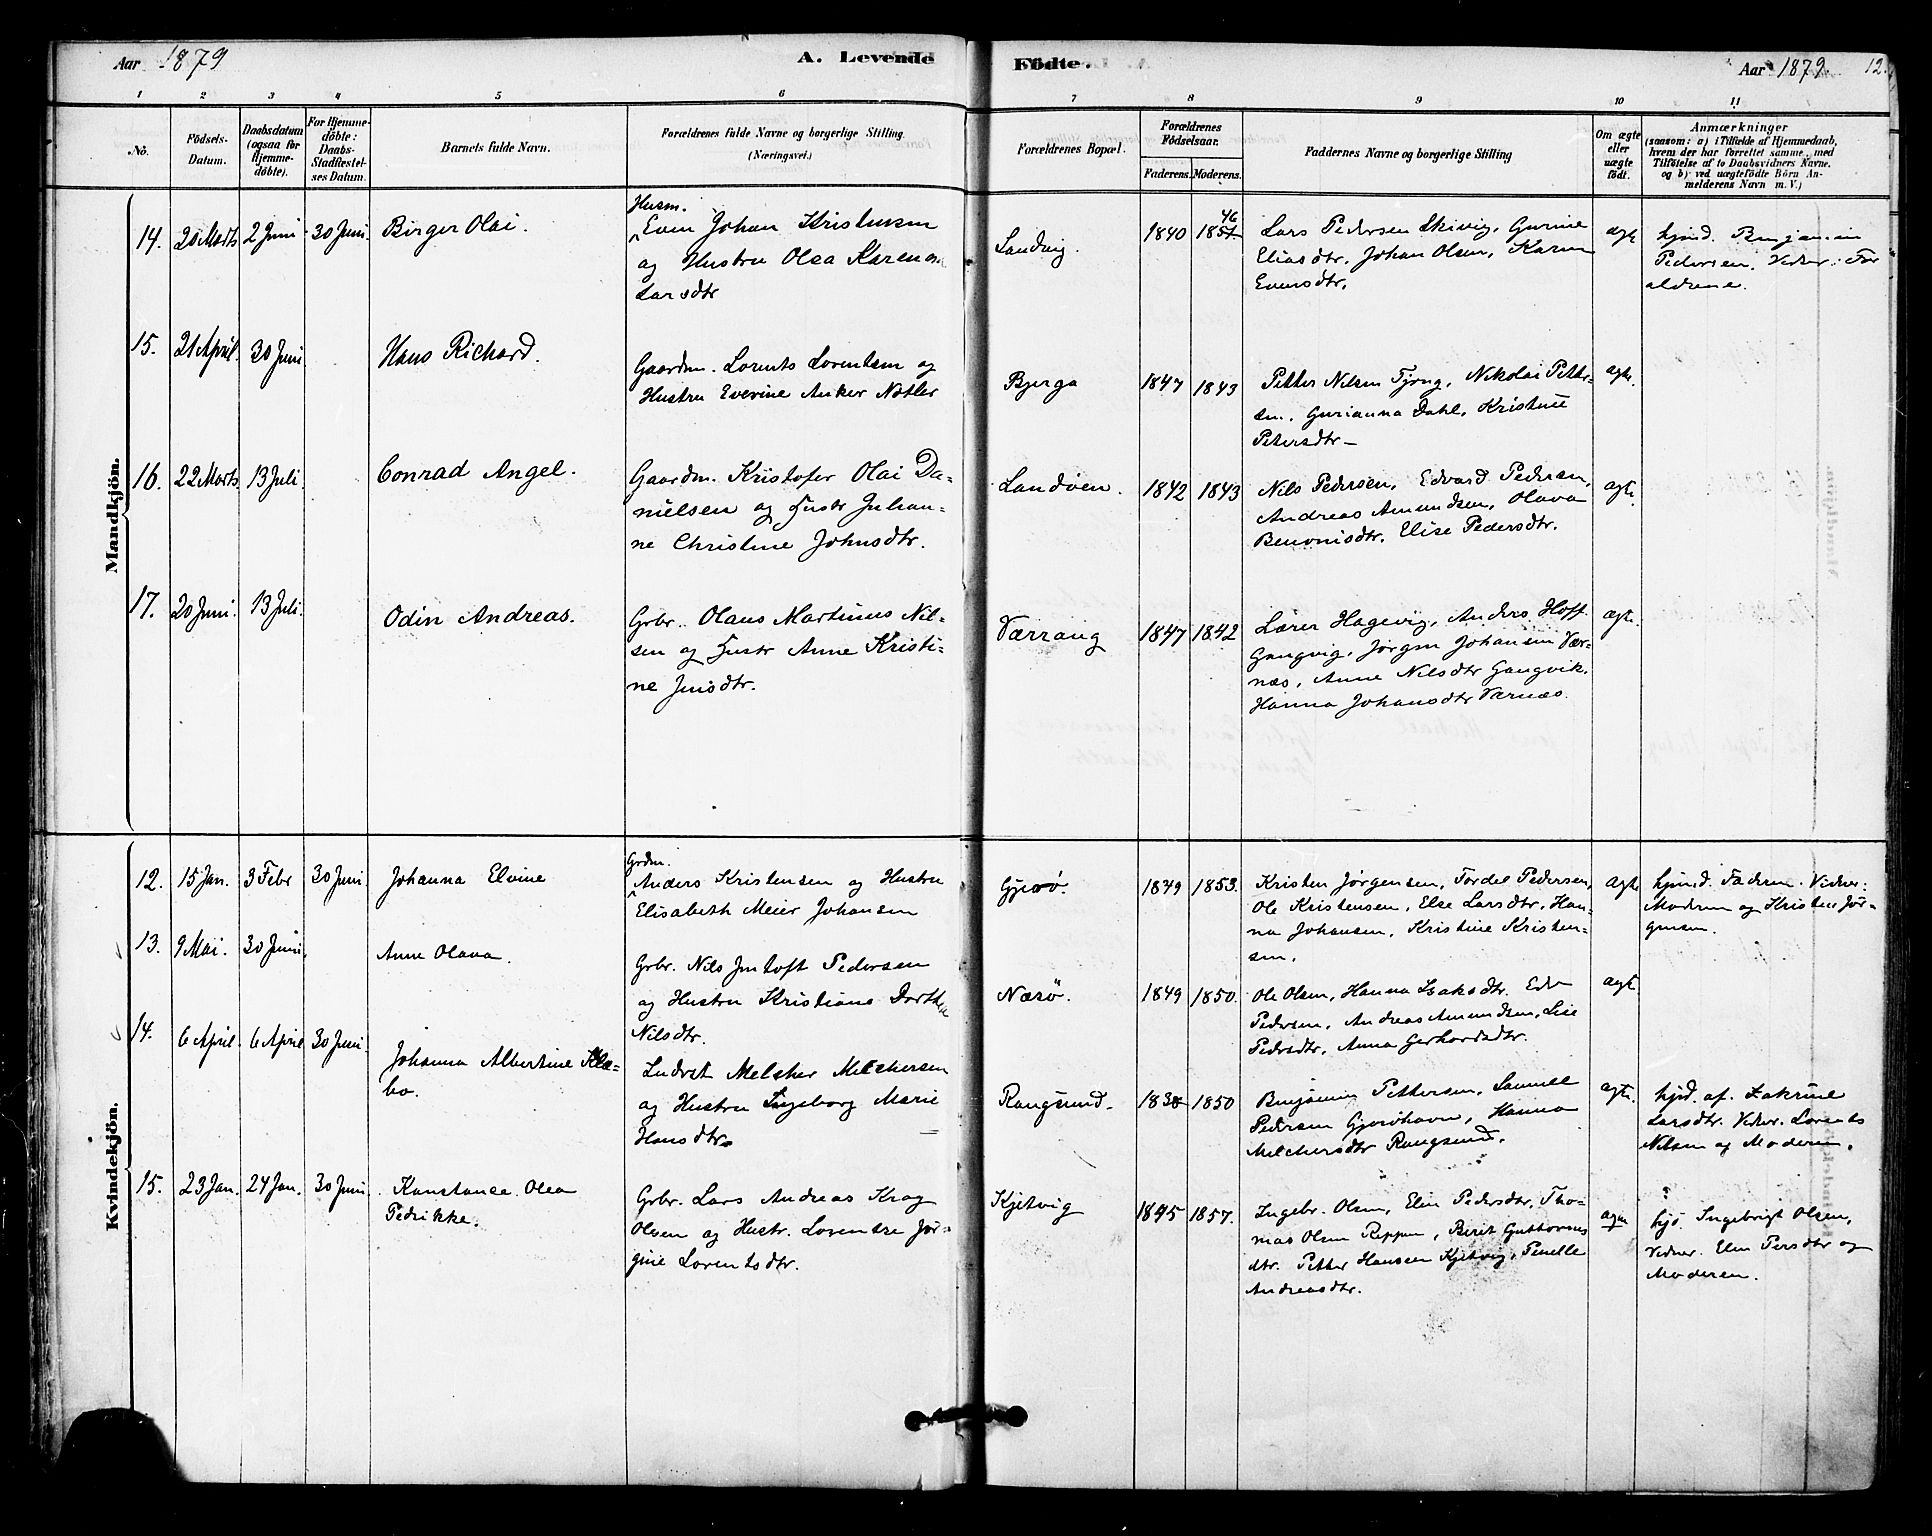 Aar 1879
A. Levende
Födte.
Aar 1879.
12.
1
2
3
4
5
6
7
8
9
10
11
No.
Födsels-
Datum.
Daabsdatum
(ogsaa for
Hjemme-
döbte).
For Hjemme-
döbte:
Daabs-
Stadfæstel-
ses Datum.
Barnets fulde Navn.
Forældrenes fulde Navne og borgerlige Stilling.
(Næringsvei.)
Forældrenes Bopæl.
Forældrenes
Födselsaar.
Faderens.
Moderens.
Faddernes Navne og borgerlige Stilling
Om ægte
eller
uægte
födt.
Anmærkninger
(saasom: a) i Tilfælde af Hjemmedaab,
hvem der har forrettet samme, med
Tilföielse af to Daabsvidners Navne,
og b) ved uægtefödte Börn An-
melderens Navn m. V.)
Mandkjön.
14.
20 Marts
2 Juni
30 Juni.
Birger Olai.
Husm.
Even Johan Kristensen
og Hustru Olea Karen
Larsdtr
Landvig.
1840
46
1851
Lars Pedersen Skivig, Gurine
Eliasdtr. Johan Olsen, Karen
Evensdtr.
ægte
hjmd. Benjamin
Pedersen. Vidner: For
ældrene.
15.
21 April.
30 Juni
Hans Richard.
Gaardm. Lorents Lorentsen og
Hustru Everine Anker Nøtler
Bjerga
1847
1843
Petter Nilsen Fjong, Nikolai Petter-
sen, Gurianna Dahl, Kristine
Petersdtr
ægte.
16.
22 Marts
13 Juli
Conrad Angel.
Gaardm. Kristofer Olai Da-
nielsen og Hustr Juhan-
ne Christine Johnsdtr.
Landøen.
1842
1843
Nils Pedersen, Edvard Pedersen,
Andreas Amundsen, Olava
Benonisdtr. Elise Pedersdtr.
ægte.
17.
20 Juni.
13 Juli.
Odin Andreas.
Grbr. Olaus Martinus Nil-
sen og Hustr Anne Kristi-
ne Jensdtr.
Værrang
1847
1842
Lærer Hagevig, Anders Hoff
Gangvig, Jørgen Johansen Vær-
næs, Anne Nilsdtr Gangvik.
Hanna Johansdtr Værnæs.
ægte.
Kvindekjön.
12.
15 Jan.
3 Febr
30 Juni.
Johanna Elvine
Grdm.
Anders Kristensen og Hustru
Elisabeth Meier Johansen
Gjerø.
1849
1853.
Kristen Jørgensen, Tordel Pedersen,
Ole Kristensen, Else Larsdtr, Han-
na Johansen, Kristine Kristen-
sen.
ægte
hjmd. Faderen. Vidner:
Moderen og Kristen Jør-
gensen.
13.
9 Mai.
30 Juni.
Anne Olava.
Grbr. Nils Jentoft Pedersen
og Hustru Kristiane Dorthea
Nilsdtr.
Nærø.
1849
1850.
Ole Olsen, Hanna Isaksdtr. Edv
Pedersen, Andreas Amundsen, Lise
Pedersdtr, Anna Gerhardsdtr.
ægte
14.
6 April.
6 April
30 Juni.
Johanna Albertine Klæ-
bo.
Inderst Melcher Melchersen
og Hustru Ingeborg Marie
Hansdtr.
Rangsund.
1838
1850
Benjamin Pettersen, Samuel
Pedersen Gjerøhavn, Hanna
Melchersdtr Rangsund.
ægte.
hjd. af. Zakrine
Larsdtr. Vidner. Lorents
Nilsen og Moderen.
15.
23 Jan.
24 Jan.
30 Juni
Konstance Olea
Pedrikke.
Grbr. Lars Andreas Krog
Olsen og Hustr. Lorentze Jør-
gine Lorentsdtr.
Kjetvig
1845
1857.
Ingebr. Olsen, Elen Pedersdtr, Tho-
mas Olsen Reppen, Berit Guttorms
dtr. Petter Hansen Kjetvig, Pernelle
Andreasdtr.
hjd. Ingebrigt Olsen,
Vidner. Elen Persdtr og
Moderen.